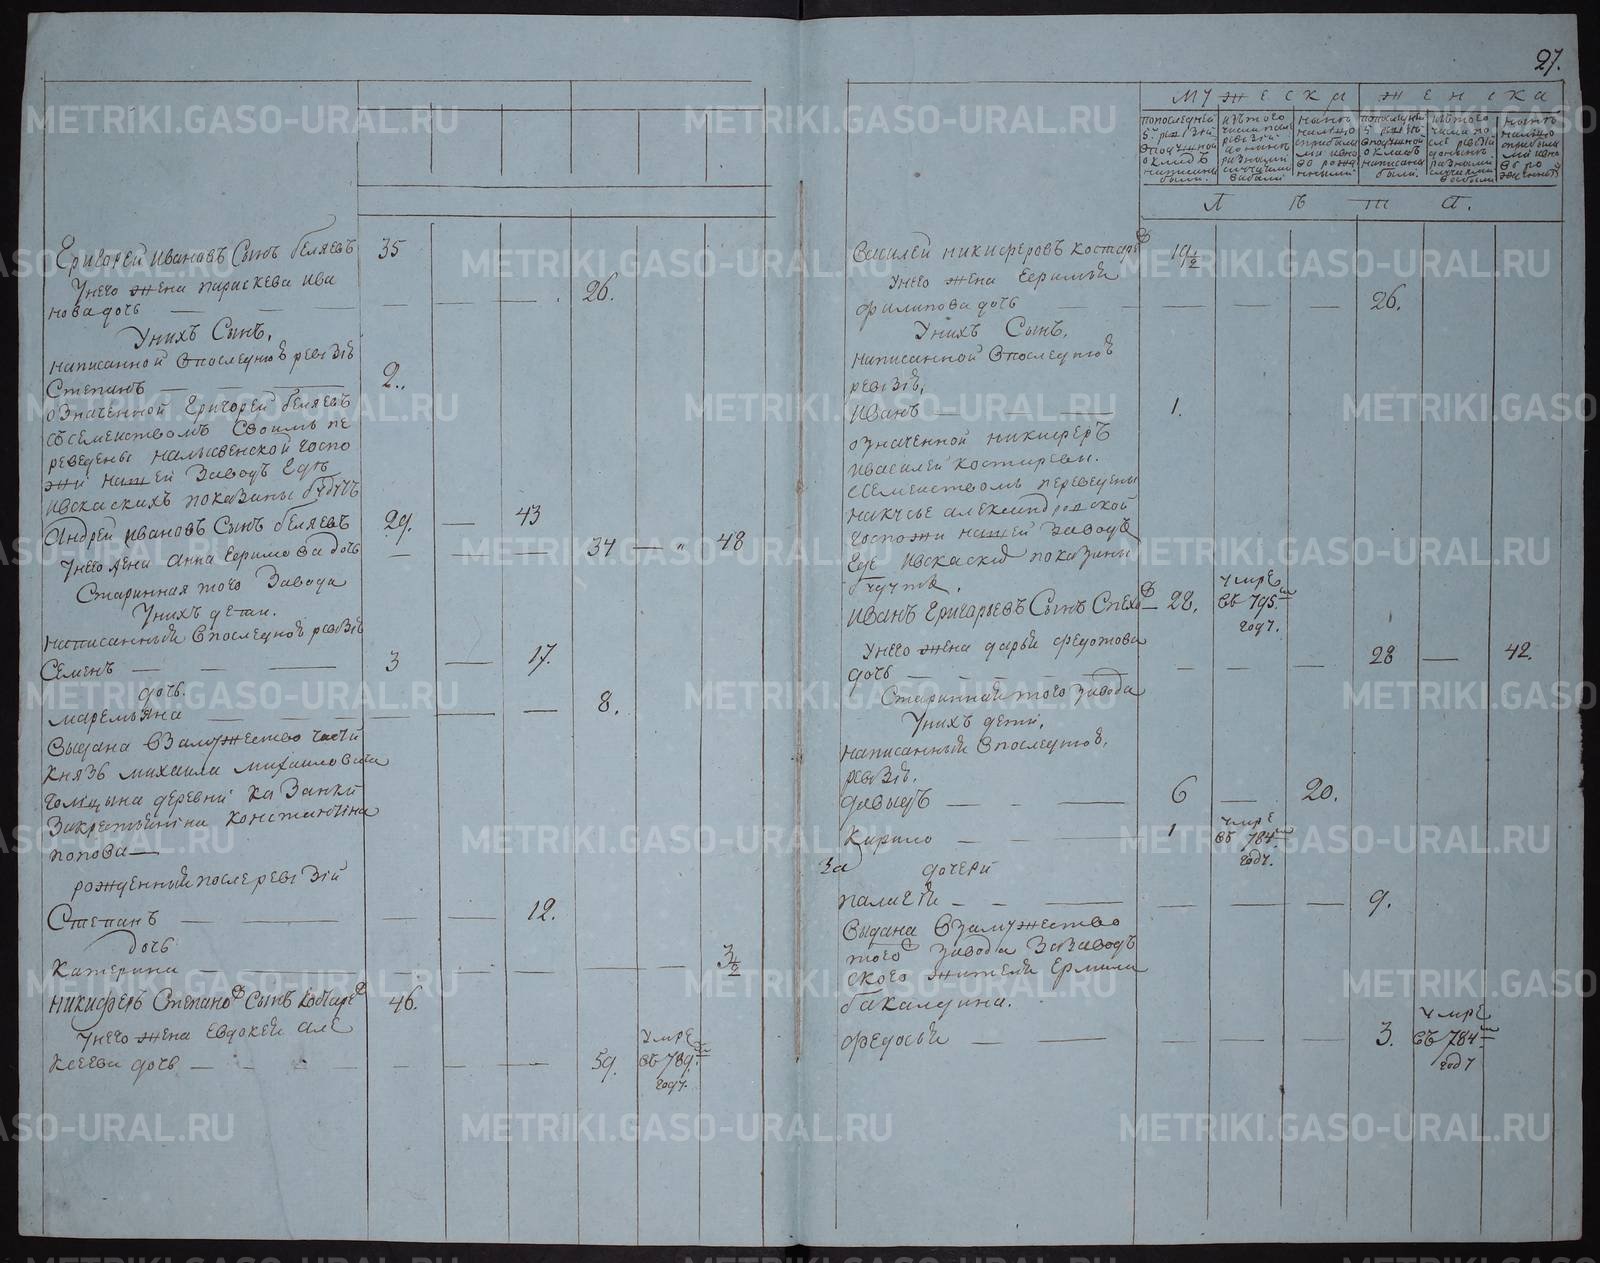 Григорей Ивановъ Сынъ беляевъ 35
Унего жена параскева ива
нова дочь — — — — . 26.
Унихъ Сынъ,
написанной впоследнюю ревизiю
Степанъ — — — 2..
означенной Григорей беляевъ
съсемеиствомъ своимъ пе
реведены налысвенской госпо
жи нашей заводъ Где
ивсказкахъ показаны будутъ
Андрей ивановъ Сынъ беляевъ 29. — 43
Унего жена Анна Ефимова дочь — — — 34 — 48
Старинная того завода
Унихъ дети.
написанныя впоследной ревизiи
Семенъ — — — 3 — 17.
дочь.
маремьяна — — — — — — 8.
выдана взамужество
Князь михаила михаиловича
голицына деревни казанки
Закрестьянина константина
попова —
рожденныя после ревизiи
Степанъ — — — — 12.
дочь
Катерина — — — — — — 3 1/2
никифоръ Степановъ Сынъ костаревъ 46.
Унего жена Евдокея але
ксеева дочь — — — — — 59. умре
въ 789.м
году.
27.
мужеска женска
попоследней
5й ревизiи
вподушной
окладъ
написаны
были.
изътого
числа после
ревизiи
донынѣ
разными
случаями
выбыли
попоследней
5й ревизiи
вподушной
окладъ
написаны
были.
изътого
числа по
сле ревизiи
донынѣ
разными
случаями
выбыли
Л ѣ т а.
Василей никифоровъ костаревъ 19 1/2
Унего жена
филипова дочь — — — — 26.
Унихъ Сынъ,
написанной впоследнюю
ревизiю,
Иванъ — — — 1.
означенной никифоръ
ивасилей костаревы.
ссемеиствомъ переведены
накусье александровской
госпожи нашей заводъ
Где ивсказке показаны
будутъ.
Иванъ Григорьевъ Сынъ — 28. умре
въ 795.м
году.
Унего жена дарья федотова
дочь — — — — — — 28 — 42.
Старинная того завода
Унихъ дети,
написанныя впоследнюю,
ревизiю.
давыдъ — — — 6 — 20.
Кирило — — — 1 умре
въ 784м
году.
дочери
палагея — — — — — — 9.
выдана взамужество
того завода Зазавод
ского жителя Ермила
бакалдина.
федосья — — — — — 3. умре
въ 784м
году